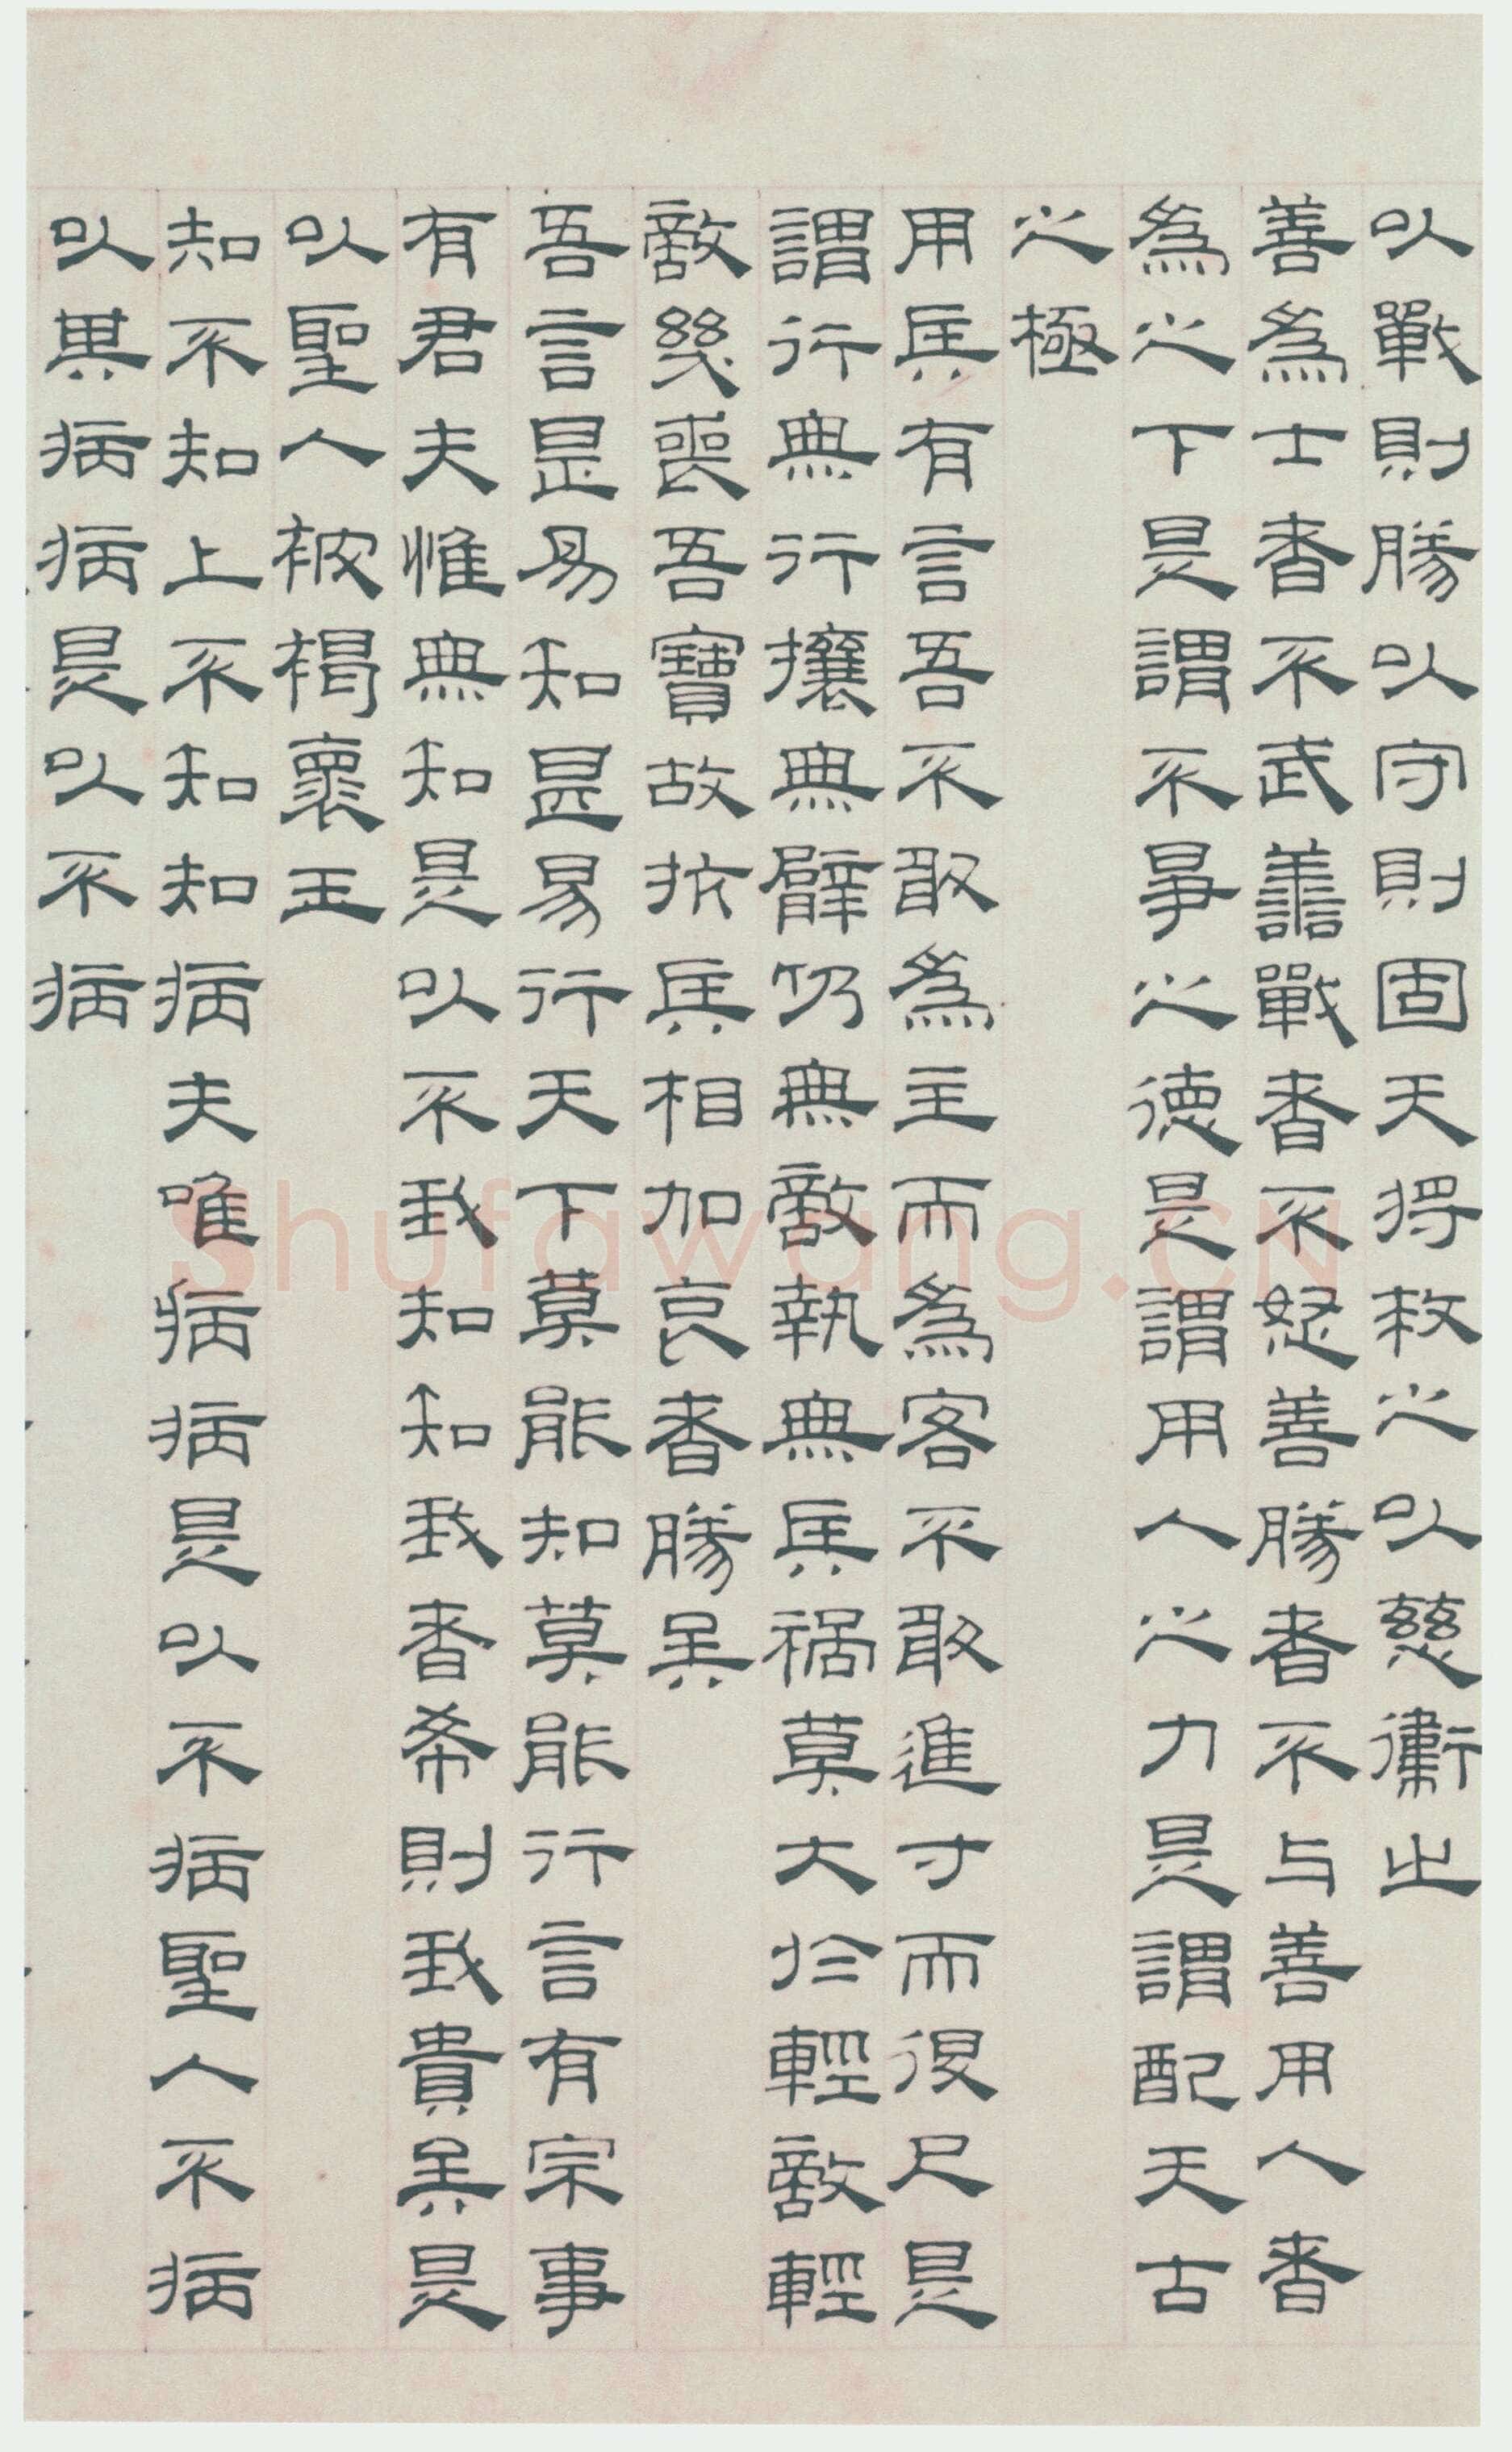 以戰則勝以守則固天將救之以慈衛之
善為士者不武善戰者不怒善勝者不与善用人者
為之下是謂不爭之德是謂用人之力是謂配天古
之極
用兵有言吾不敢為主而為客不敢進寸而後尺是
謂行無行攘無臂仍無敵執無兵禍莫大於輕敵輕
敵幾喪吾寶故抗兵相加哀者勝矣
吾言是易知甚易行天下莫能知莫能行言有宗事
有君夫惟無知是以不我知知我者希則我貴矣是
以聖人被褐褱玉
知不知上不知知病夫唯病病是以不病聖人不病
以其病病是以不病
shufawang.CN